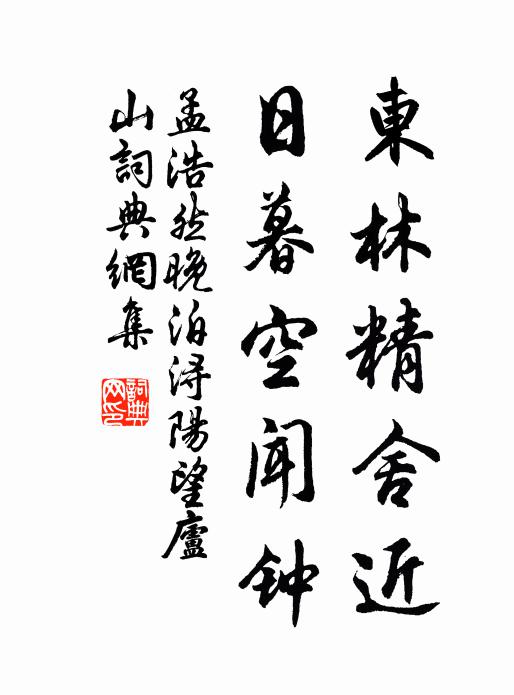 東林精舍近
日暮空闻钟
孟浩然晚泊浔陽望廬
山詞典網集
詞典网印